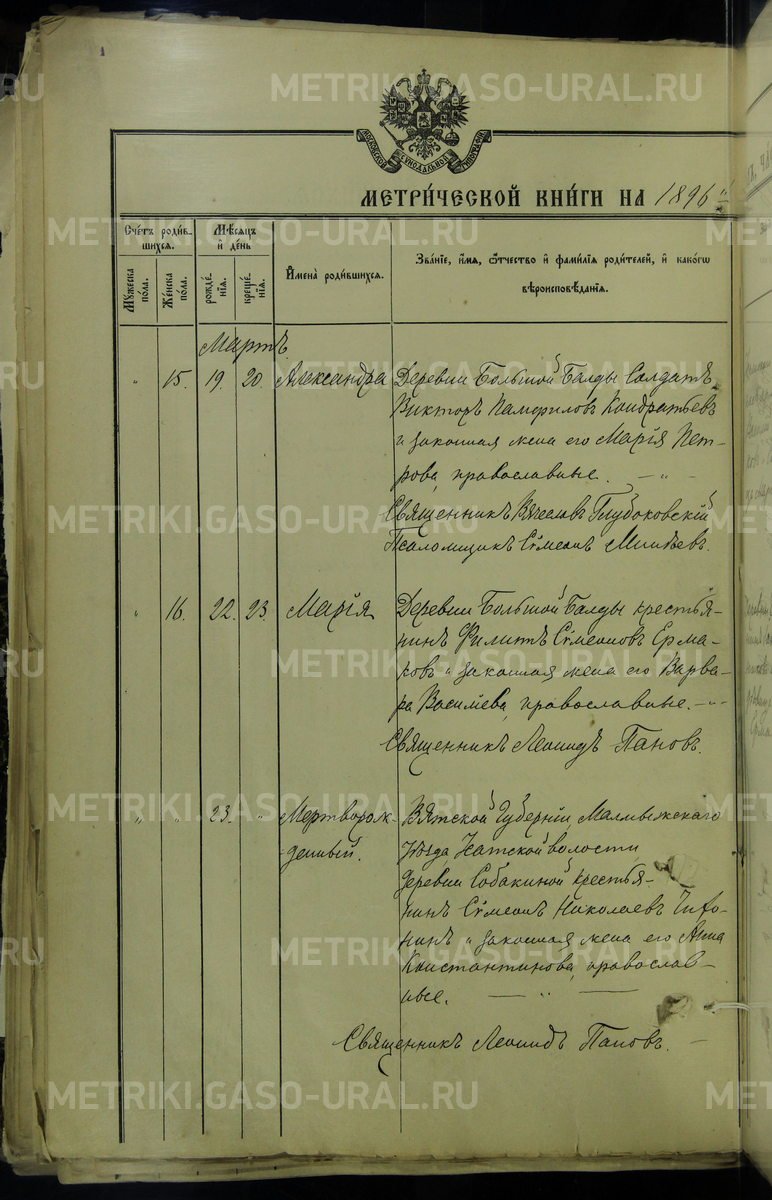 METRIKI.GASO-URAL.RU
МОСКОВСКОЙ СѴНОДАЛЬНОЙ ТИПОГРАФІИ
МЕТРИ́ЧЕСКОЙ КНИ́ГИ НА 1896
Сче́тъ роди́в-
шихся.
Мꙋжеска по́ла.
Же́нска по́ла.
Мѣ́сяцъ
и҆ де́нь
рожде́-
нїѧ.
креще́-
нїѧ.
И҆мена̀ роди́вшихся.
Зва́нїе, и҆́мѧ, ѻ҆́тчество и҆ фами́лїѧ роди́телей, и҆ како́гѡ
вѣроисповѣ́данїѧ.
Мартъ.
" 15. 19. 20. Александра Деревни Большой Балды Солдатъ
Викторъ Памфиловъ Кондратьевъ
и законная жена его Марія Пет-
рова, православные. — " —
Священникъ Вячеславъ Глубоковскій
Псаломщикъ Сѵмеонъ
" 16. 22. 23. Марія Деревни Большой Балды крестья-
нинъ Филиппъ Сѵмеоновъ Ерма-
ковъ и законная жена его Варва-
ра Васильева, православные. — " —
Священникъ Леонидъ Пановъ.
" " 23. " Мертворож- Вятской Губерніи, Малмыжскаго
денный. Уѣзда, волости,
деревни Собакиной крестья-
нинъ Сѵмеонъ Николаевъ
и законная жена его Анна
Константинова, православ-
ные. — " —
Священникъ Леонидъ Пановъ. —
METRIKI.GASO-URAL.RU